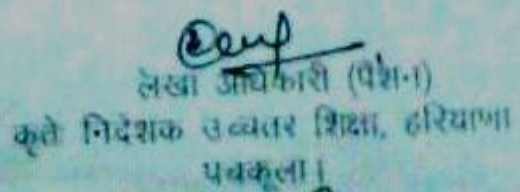 लेखा अधिकारी (पेंशन)
कृते निदेशक उच्चतर शिक्षा, हरियाणा
पंचकूला।